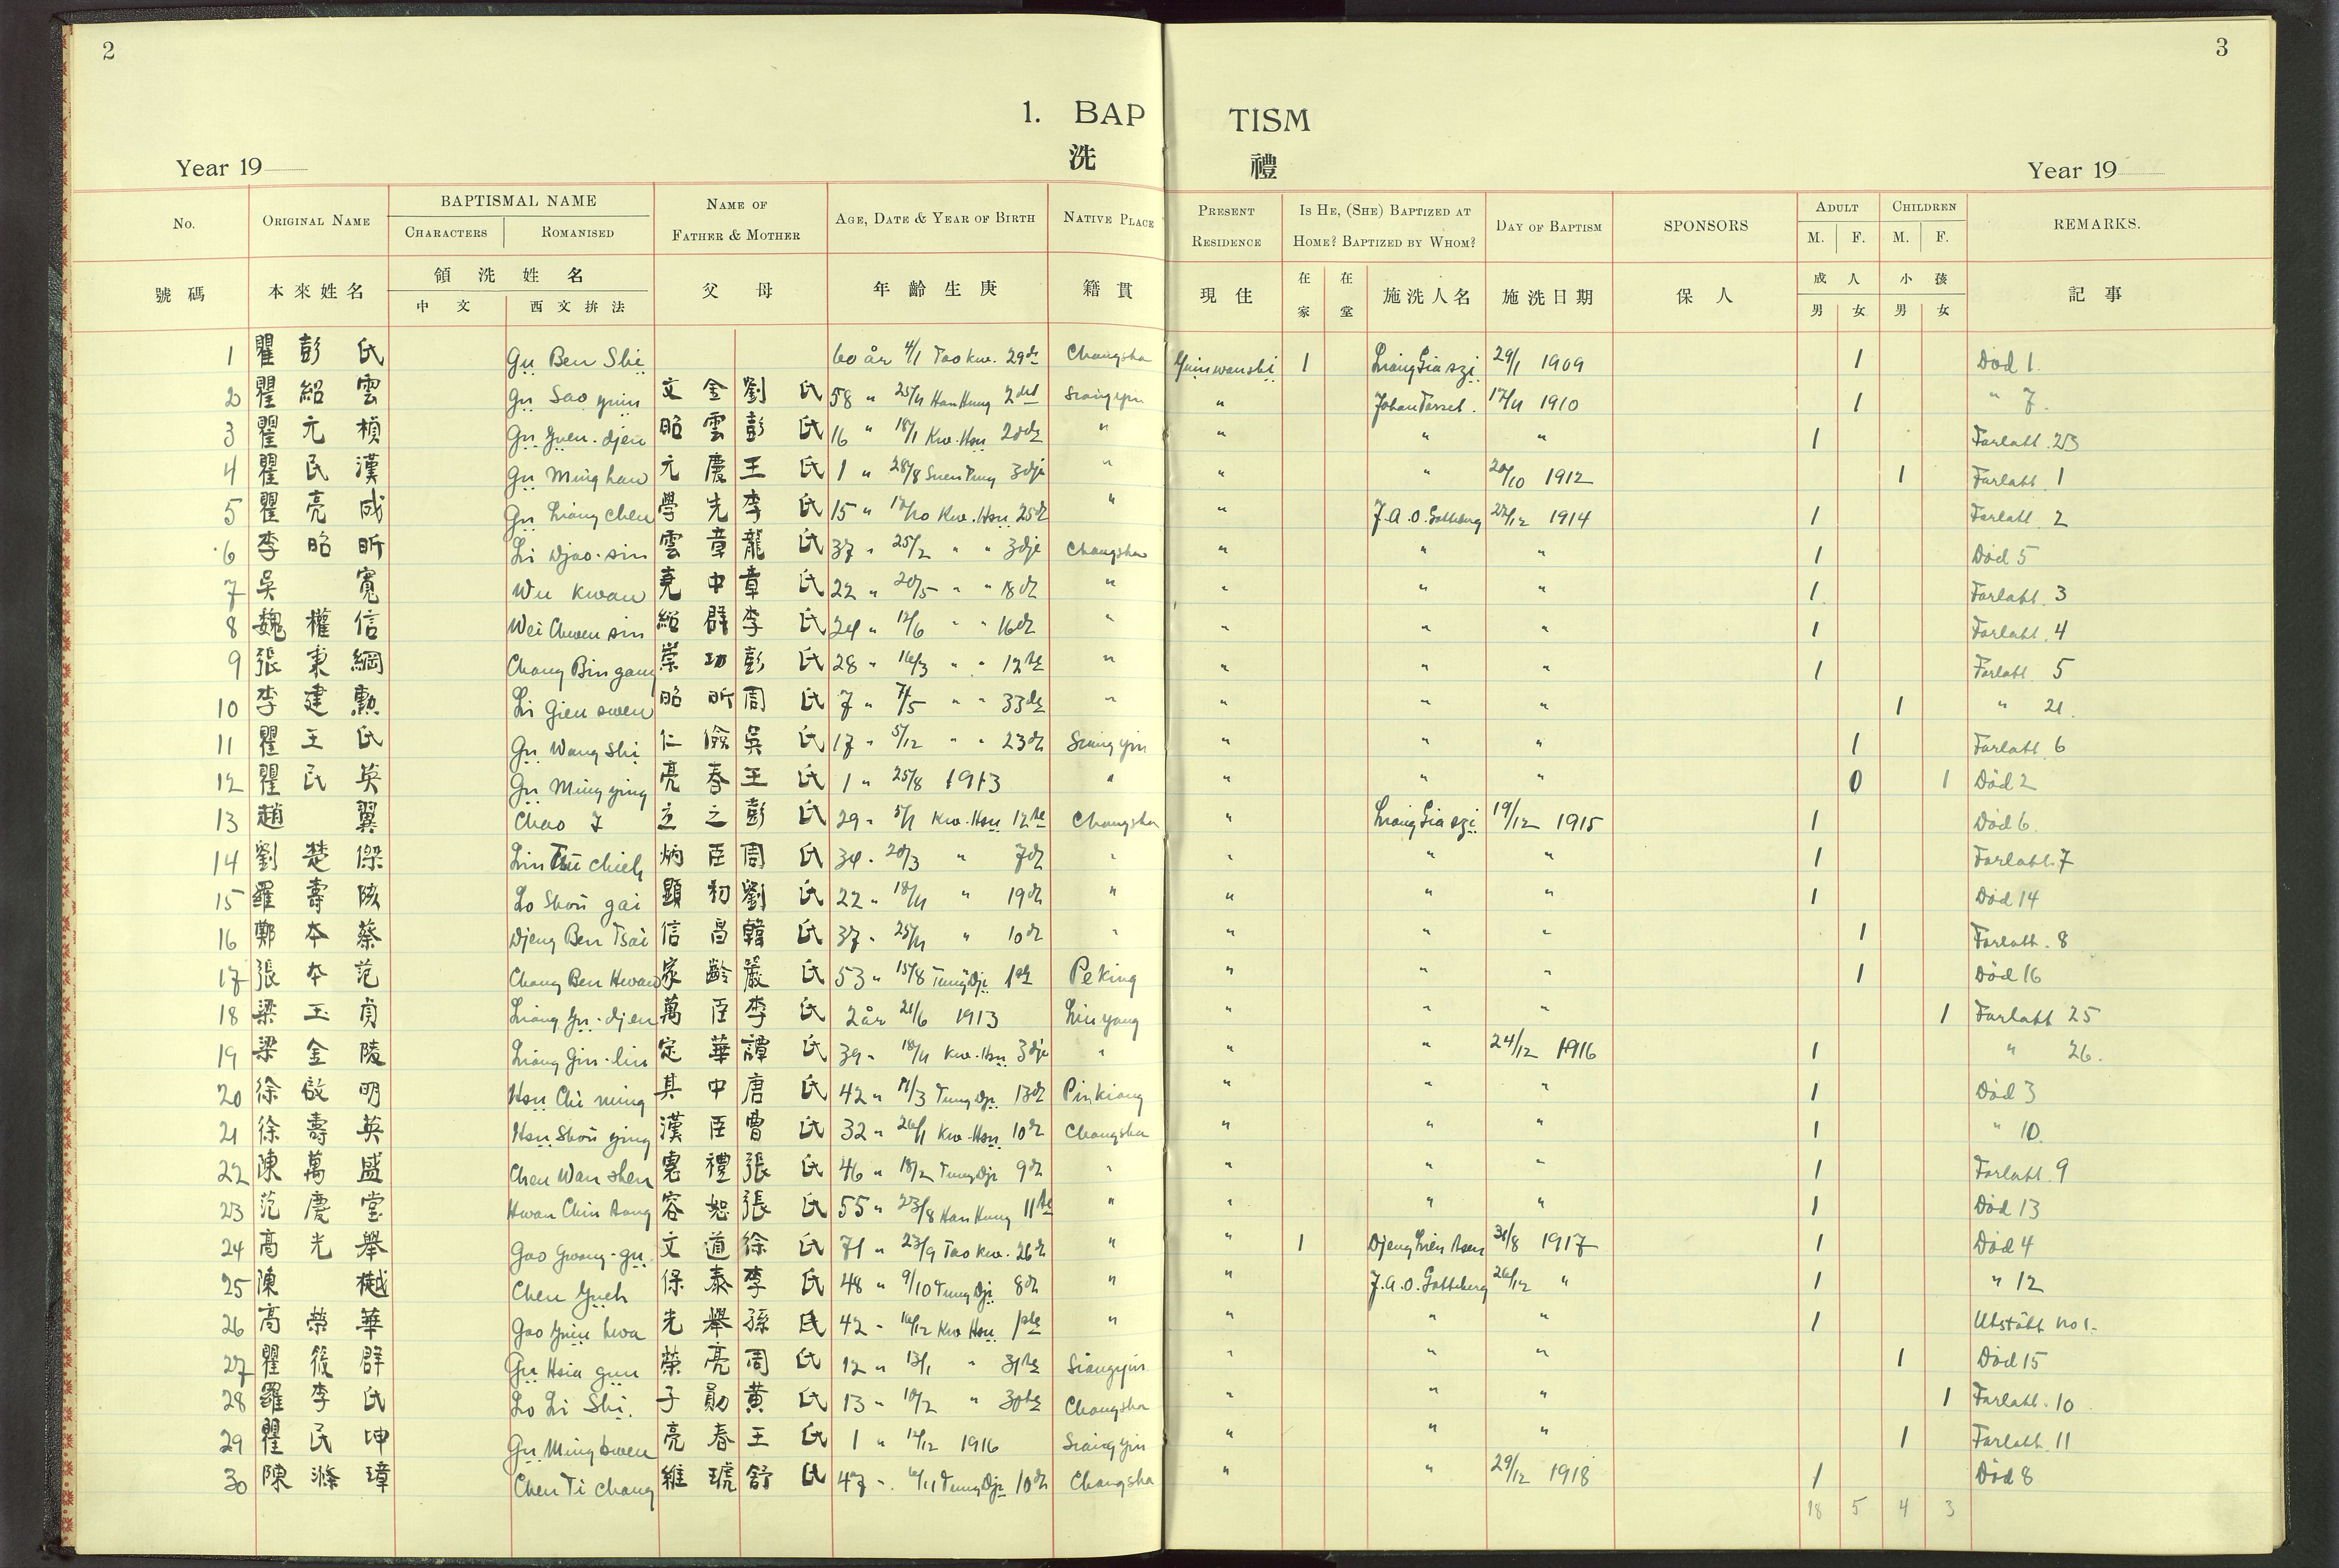 2
3
1. BAP TISM
洗 禮
Year 19
Year 19
No. ORIGINAL NAME BAPTISMAL NAME CHARACTERS ROMANISED NAME OF FATHER & MOTHER AGE, DATE & YEAR OF BIRTH NATIVE PLACE PRESENT RESIDENCE IS HE, (SHE) BAPTIZED AT HOME? BAPTIZED BY WHOM? DAY OF BAPTISM SPONSORS ADULT M. F. CHILDREN M. F. REMARKS.
號碼 本來姓名 領洗姓名 中文 西文拚法 父母 年齡生庚 籍貫 現住 在家 在堂 施洗人名 施洗日期 保人 成人 男 女 小孩 男 女 記事
1 瞿彭氏 Gu Ben Shi 60 år 4/1 Tao kw. 29de Changsha Guinwanshi 1 Liang Gia szi 29/1 1909 1 Död 1.
2 瞿紹雲 Gu Sao yuin 文金 劉氏 58 " 25/11 Han Hung 2det Siangyin " Johan Tarset. 17/11 1910 1 " 7.
3 瞿元楨 Gu Yuen-djen 昭雲 彭氏 16 " 18/1 Kw. Hsu 20de " " " " 1 Forlatt. 23
4 瞿民漢 Gu Ming han 元慶 王氏 1 " 28/8 Suen Tung 3dje " " " 20/10 1912 1 Forlatt. 1
5 瞿亮成 Gu Liang chen 學先 李氏 15 " 12/10 Kw. Hsu 25de " " J.A.O. Gotteberg 27/12 1914 1 Forlatt. 2
6 李昭昕 Li Djao-sin 雲章 龍氏 37 " 25/2 " " 3dje Changsha " " " 1 Död 5
7 吳寬 Wu Kwan 堯中 章氏 22 " 20/5 " " 18de " " " " 1 Forlatt. 3
8 魏權信 Wei Chuen sin 紹群 李氏 24 " 12/6 " " 16de " " " " 1 Forlatt. 4
9 張秉綱 Chang Bin gang 崇功 彭氏 28 " 16/3 " " 12te " " " " 1 Forlatt. 5
10 李建勲 Li Gien swen 昭昕 周氏 7 " 7/5 " " 33de " " " " 1 " 21.
11 瞿王氏 Gu Wang Shi 仁儉 吳氏 17 " 5/12 " " 23de Siangyin " " " 1 Forlatt. 6
12 瞿民英 Gu Ming ying 亮春 王氏 1 " 25/8 1913 " " " " 0 1 Död 2
13 趙翼 Chao I 立之 彭氏 29 " 5/11 Kw. Hsu 12te Changsha " Liang Gia szi 19/12 1915 1 Död 6.
14 劉楚傑 Liu Tsu chieh 炳臣 周氏 34 " 20/3 " 7de " " " " 1 Forlatt. 7
15 羅壽陔 Lo Shou gai 顯初 劉氏 22 " 18/11 " 19de " " " " 1 Död 14
16 鄭本蔡 Djeng Ben Tsai 信昌 韓氏 37 " 25/11 " 10de " " " " 1 Forlatt. 8
17 張本范 Chang Ben Hwan 家齡 嚴氏 53 " 15/8 Tung Dji 1ste Peking " " " 1 Död 16
18 梁玉貞 Liang Yu-djen 萬臣 李氏 2 år 21/6 1913 Liuyang " " " 1 Forlatt 25
19 梁金陵 Liang Gin-lin 定華 譚氏 39 " 18/11 Kw. Hsu 3dje " " " 24/12 1916 1 " 26.
20 徐啟明 Hsu Chi ming 其中 唐氏 42 " 11/3 Tung Dji 13de Pinkiang " " " 1 Död 3
21 徐壽英 Hsu Shou ying 漢臣 曹氏 32 " 26/1 Kw. Hsu 10de Changsha " " " 1 " 10.
22 陳萬盛 Chen Wan shen 惠禮 張氏 46 " 18/2 Tung Dji 9de " " " " 1 Forlatt. 9
23 范慶堂 Hwan Chin tang 容恕 張氏 55 " 23/8 Han Hung 11te " " " " 1 Död 13
24 高光舉 Gao Gwang-gu 文道 徐氏 71 " 23/9 Tao kw. 26de " " 1 Djeng Lien tsen 31/8 1917 1 Död 4
25 陳樾 Chen Yueh 保泰 李氏 48 " 9/10 Tung Dji 8de " " J.A.O. Gotteberg 26/12 " 1 " 12
26 高榮華 Gao Yuin hwa 光舉 孫氏 42 " 16/12 Kw Hsu 1ste " " " " 1 Utstött no 1.
27 瞿筱群 Gu Hsia gun 榮亮 周氏 12 " 13/1 " 31te Siangyin " " " 1 Död 15
28 羅李氏 Lo Li Shi. 子勛 黃氏 13 " 10/2 " 30te Changsha " " " 1 Forlatt. 10
29 瞿民坤 Gu Ming kwen 亮春 王氏 1 " 12/12 1916 Siangyin " " " 1 Forlatt. 11
30 陳滌璋 Chen Ti Chang 維琥 舒氏 47 " 6/11 Tung Dji 10de Changsha " " 29/12 1918 1 Död 8
18 5 4 3